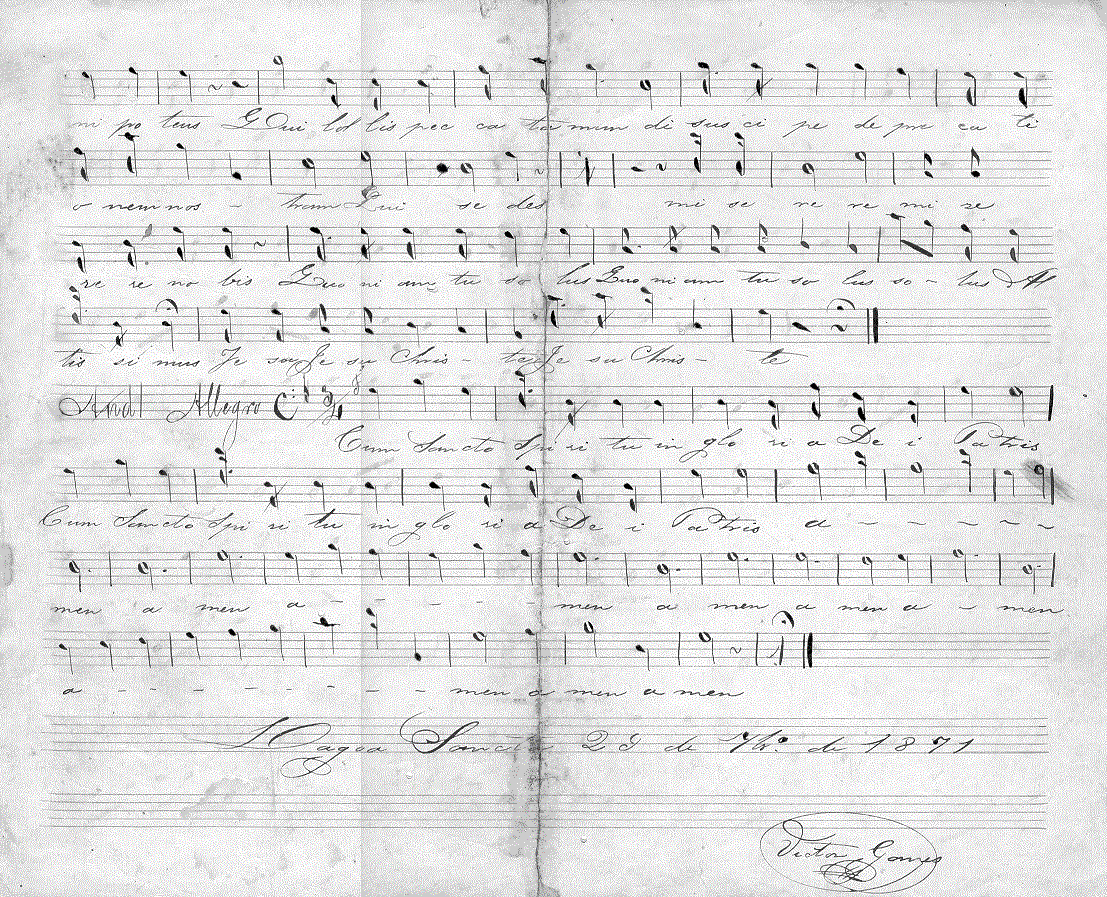 ni po tens Qui tol lis pec ca ta mun di sus ci pe de pre ca ti
o nem nos - tram Qui se des mi se re re mi se
re re no bis Quo ni am tu so lus Quo ni am tu so lus so - lus Al
tis si mus Je su Je su Chris - te Je su Chris - te
And Allegro
Cum Sancto Spi ri tu in glo ri a De i Patris
Cum Sancto Spi ri tu in glo ri a De i Patris a - - - - -
men a men a - - - - - - men a men a men a - men
a - - - - - - - - - men a men a men
Lagoa Sancta 29 de 7br.º de 1871
Victor Gomes